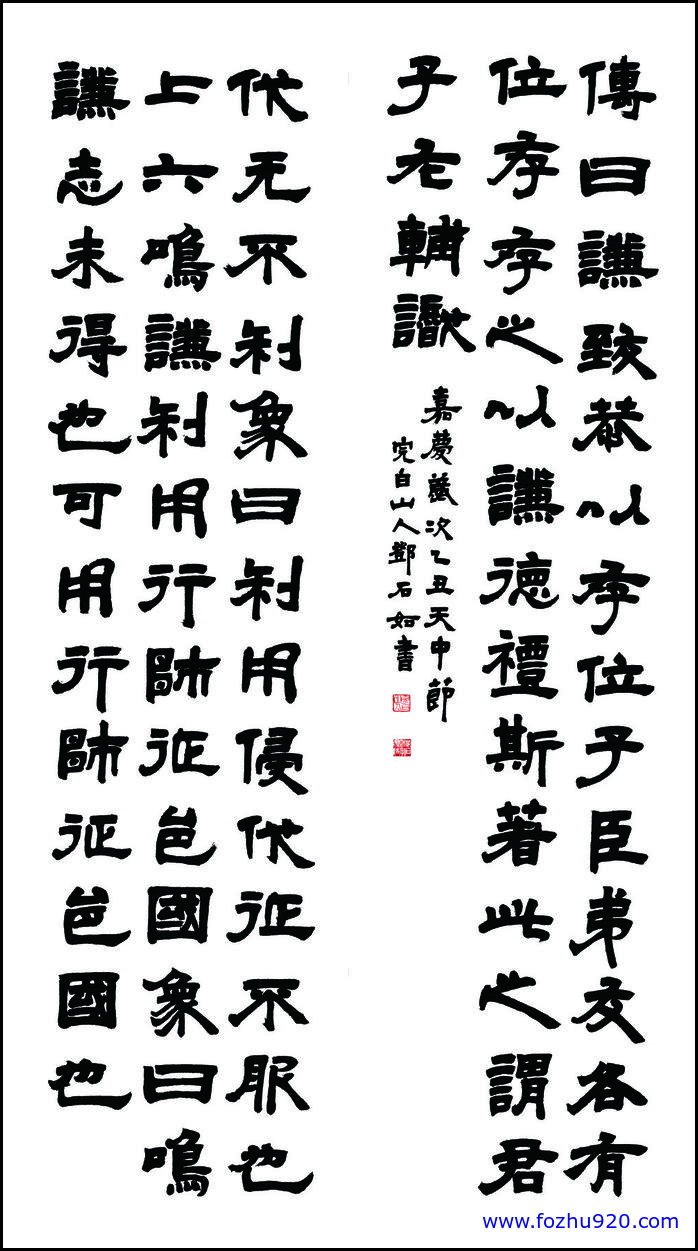 傳曰謙致恭以存位子臣弟友各有
位存存之以謙德禮斯著此之謂君
子左輔
嘉慶歲次乙丑天中節
完白山人鄧石如書
伐无不利象曰利用侵伐征不服也
上六鳴謙利用行師征邑國象曰鳴
謙志未得也可用行師征邑國也
www.fozhu920.com